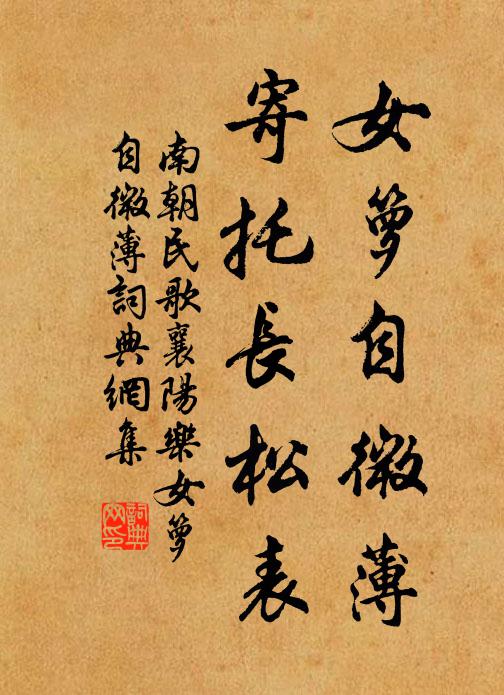 女萝自微薄
寄托長松表
南朝民歌襄陽樂女萝
自微薄詞典網集
詞典网印